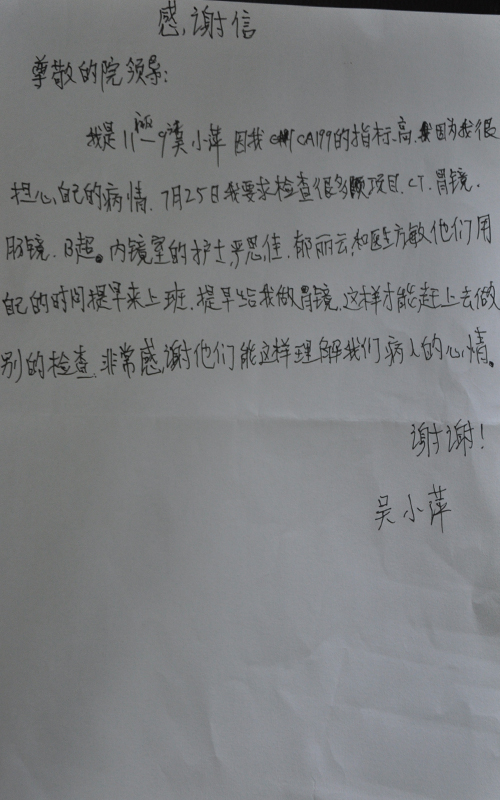 感谢信
尊敬的院领导:
我是11病-9 吴小萍 因我 CA199的指标高.因为我很
担心自己的病情.7月25日我要求检查很多项目.CT.胃镜.
肠镜.B超。内镜室的护士严思佳.郁丽云,和医生方敏他们用
自己的时间提早来上班.提早给我做胃镜.这样才能赶上去做
别的检查.非常感谢他们能这样理解我们病人的心情。
谢谢!
吴小萍